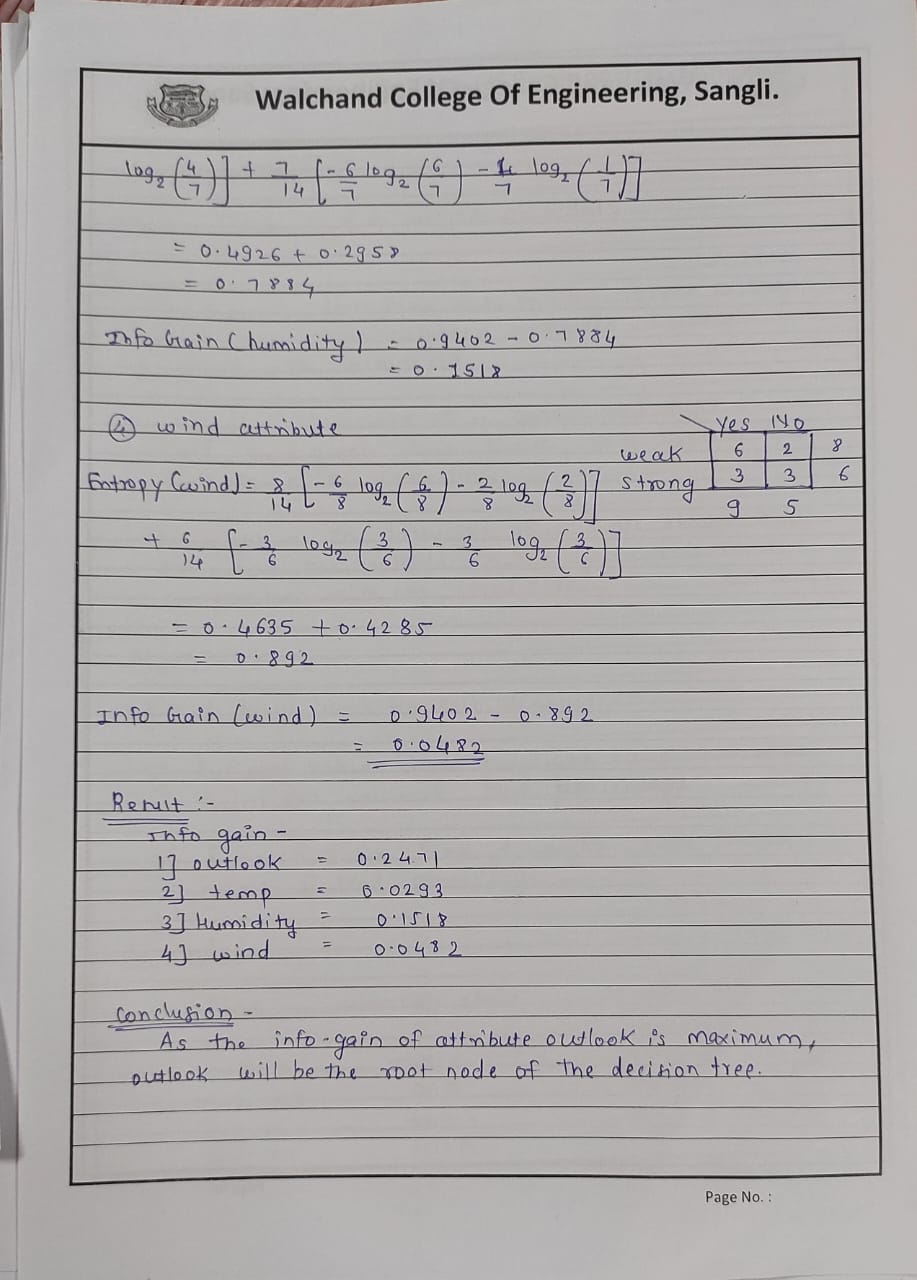 Walchand College Of Engineering, Sangli.
log₂ (4/7)] + 7/14 [-6/7 log₂ (6/7) - 1/7 log₂ (1/7)]
= 0.4926 + 0.2958
= 0.7884
Info Gain (humidity) = 0.9402 - 0.7884
= 0.1518
④ wind attribute
Yes No
weak 6 2 8
Strong 3 3 6
9 5
Entropy (wind) = 8/14 [-6/8 log₂ (6/8) - 2/8 log₂ (2/8)]
+ 6/14 [-3/6 log₂ (3/6) - 3/6 log₂ (3/6)]
= 0.4635 + 0.4285
= 0.892
Info Gain (wind) = 0.9402 - 0.892
= 0.0482
Result :-
Info gain -
1] outlook = 0.2471
2] temp = 0.0293
3] Humidity = 0.1518
4] wind = 0.0482
Conclusion -
As the info-gain of attribute outlook is maximum,
outlook will be the root node of the decision tree.
Page No. :